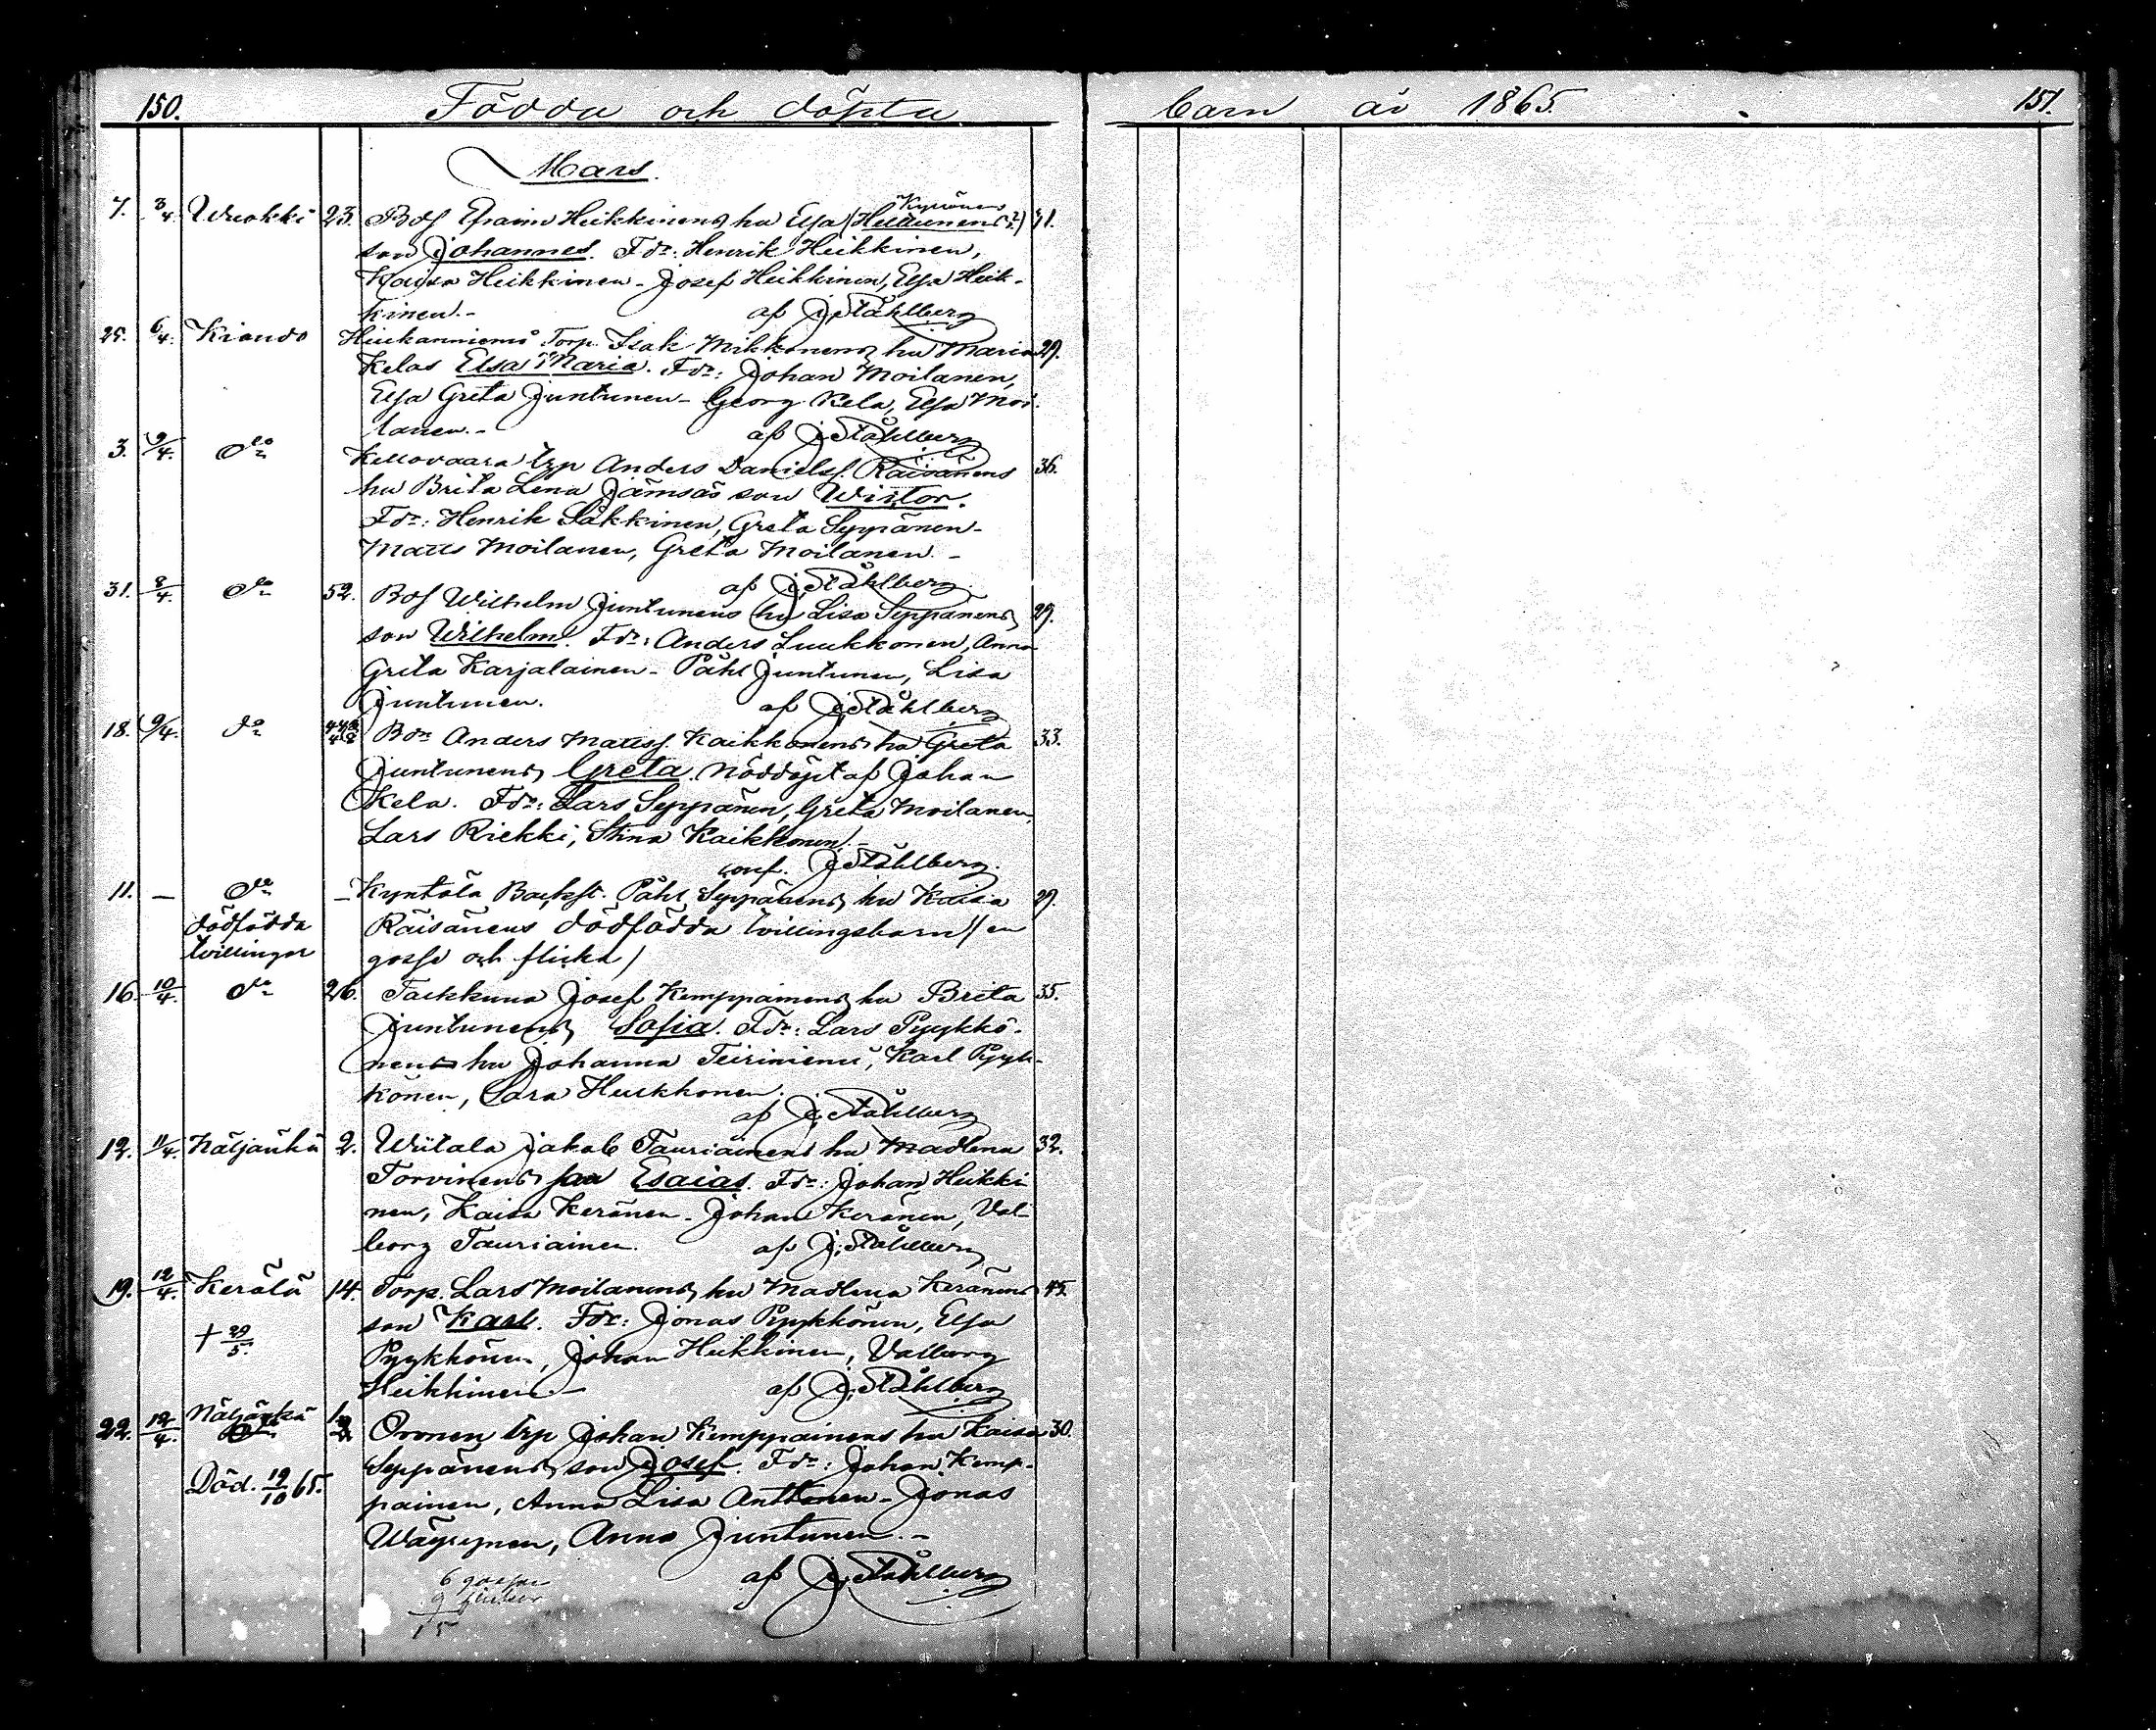 150. Födda och döpta barn år 1865. 151.
Mars.
7. 3/4. Wuokki 23. Bds Efraim Heikkinens hu Elsa (Heikkinens?) Kyrönens 31.
son Johannes. Fdr: Henrik Heikkinen,
Kaisa Heikkinen - Josef Heikkinen, Elsa Heik-
kinen. - af J. Ståhlberg
25. 6/4. Kiando Torp. Isak Mikkonens hu Maria 29.
Kelas Elsa Maria. Fdr: Johan Moilanen,
Elsa Greta Juntunen - Georg Kela, Elsa Moi-
lanen. - af J. Ståhlberg
3. 9/4. do Kellovaara trp Anders Danielss. Räisänens 36.
hu Brita Lena Jämsäs son Wictor.
Fdr: Henrik Säkkinen, Greta Seppänen -
Matts Moilanen, Greta Moilanen. -
af J. Ståhlberg.
31. 8/4. do 52. Bds Wilhelm Juntunens hu Lisa Seppänens 29.
son Wilhelm. Fdr: Anders Luukkonen, Anna
Greta Karjalainen - Påhl Juntunen, Lisa
Juntunen. af J. Ståhlberg
18. 9/4. do Bdn Anders Matss. Kaikkonens hu Greta 33.
Juntunens Greta. Nöddöpt af Johan
Kela. Fdr: Lars Seppänen, Greta Moilanen,
Lars Riekki, Stina Kaikkonen. -
conf. J. Ståhlberg.
11. — do — Kyntölä Backst. Påhl Seppänens hu Kaisa 29.
dödfödda Räisänens dödfödda tvillingsbarn (en
tvillingar gosse och flicka)
16. 10/4. do 26. Takkuna Josef Kemppainens hu Brita 35.
Juntunens Sofia. Fdr: Lars Pyykkö-
nens hu Johanna Teiriniemi, Karl Pyyk-
könen, Sara Hukkonen.
af J. Ståhlberg
12. 11/4. Näljänkä 2. Wiitala Jakob Tauriainens hu Madlena 32.
Torvinens son Esaias. Fdr: Johan Heikki
nen, Kaisa Keränen - Johan Keränen, Val-
borg Tauriainen. af J. Ståhlberg
19. 12/4. Kerälä 14. Torp. Lars Moilanens hu Madlena Keränens 45.
son Karl. Fdr: Jonas Pyykkönen, Elsa
† 29/5. Pyykkönen, Johan Heikkinen, Valborg
Heikkinen. - af J. Ståhlberg
22. 12/4. Näljänkä Oronen trp Johan Kemppainens hu Kaisa 30.
Seppänens son Josef. Fdr: Johan Kemp-
Död. 19/10 65. painen, Anna Lisa Anttonen - Jonas
Wäyrynen, Anna Juntunen. -
af J. Ståhlberg
6 gossar
9 flickor
15